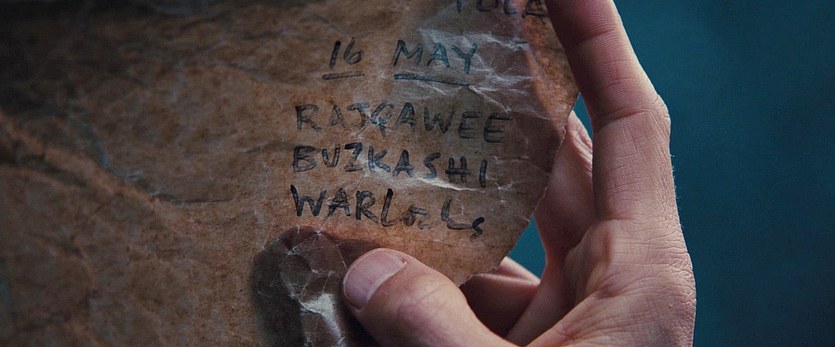 16 MAY
RAJGAWEE
BUZKASHI
WARLords